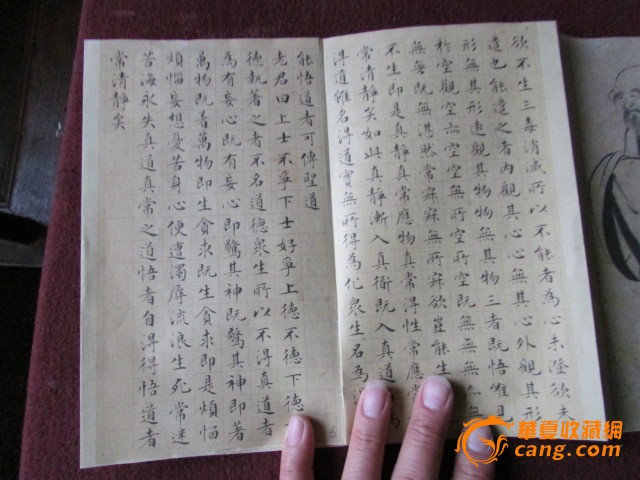 欲不生三毒消滅所以不能者為心未澄欲未
遣也能遣之者內觀其心心無其心外觀其形
形無其形遠觀其物物無其物三者既悟唯見
於空觀空亦空空無所空所空既無無無亦
無無既無湛然常寂寂無所寂欲豈能生
不生即是真靜真常應物真常得性常應常
常清靜矣如此真靜漸入真道既入真道為
得道雖名得道實無所得為化眾生名為
能悟道者可傳聖道
老君曰上士不爭下士好爭上德不德下德
德執著之者不名道德眾生所以不得真道者
為有妄心既有妄心即驚其神既驚其神即著
萬物既著萬物即生貪求既生貪求即是煩惱
煩惱妄想憂苦身心便遭濁辱流浪生死常迷
苦海永失真道真常之道悟者自得得悟道者
常清靜矣
6
華夏收藏網
cang.com